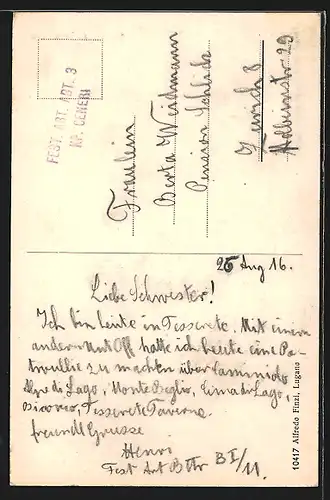 FEST. ART. ABT. 3
KP. CENERI
Fräulein
Berta Weidmann
Pension
Zürich 8
29
25 Aug 16.
Liebe Schwester!
Ich bin heute in Tesserete. Mit einem
andern Unt Off hatte ich heute eine Pa-
trullie zu machen über
di Lago, Monte Bigorio, Cima di Lago,
Tesserete Taverne.
freundl Grüsse
Henri
Fest Art Bttr BI/11.
10417 Alfredo Finzi, Lugano